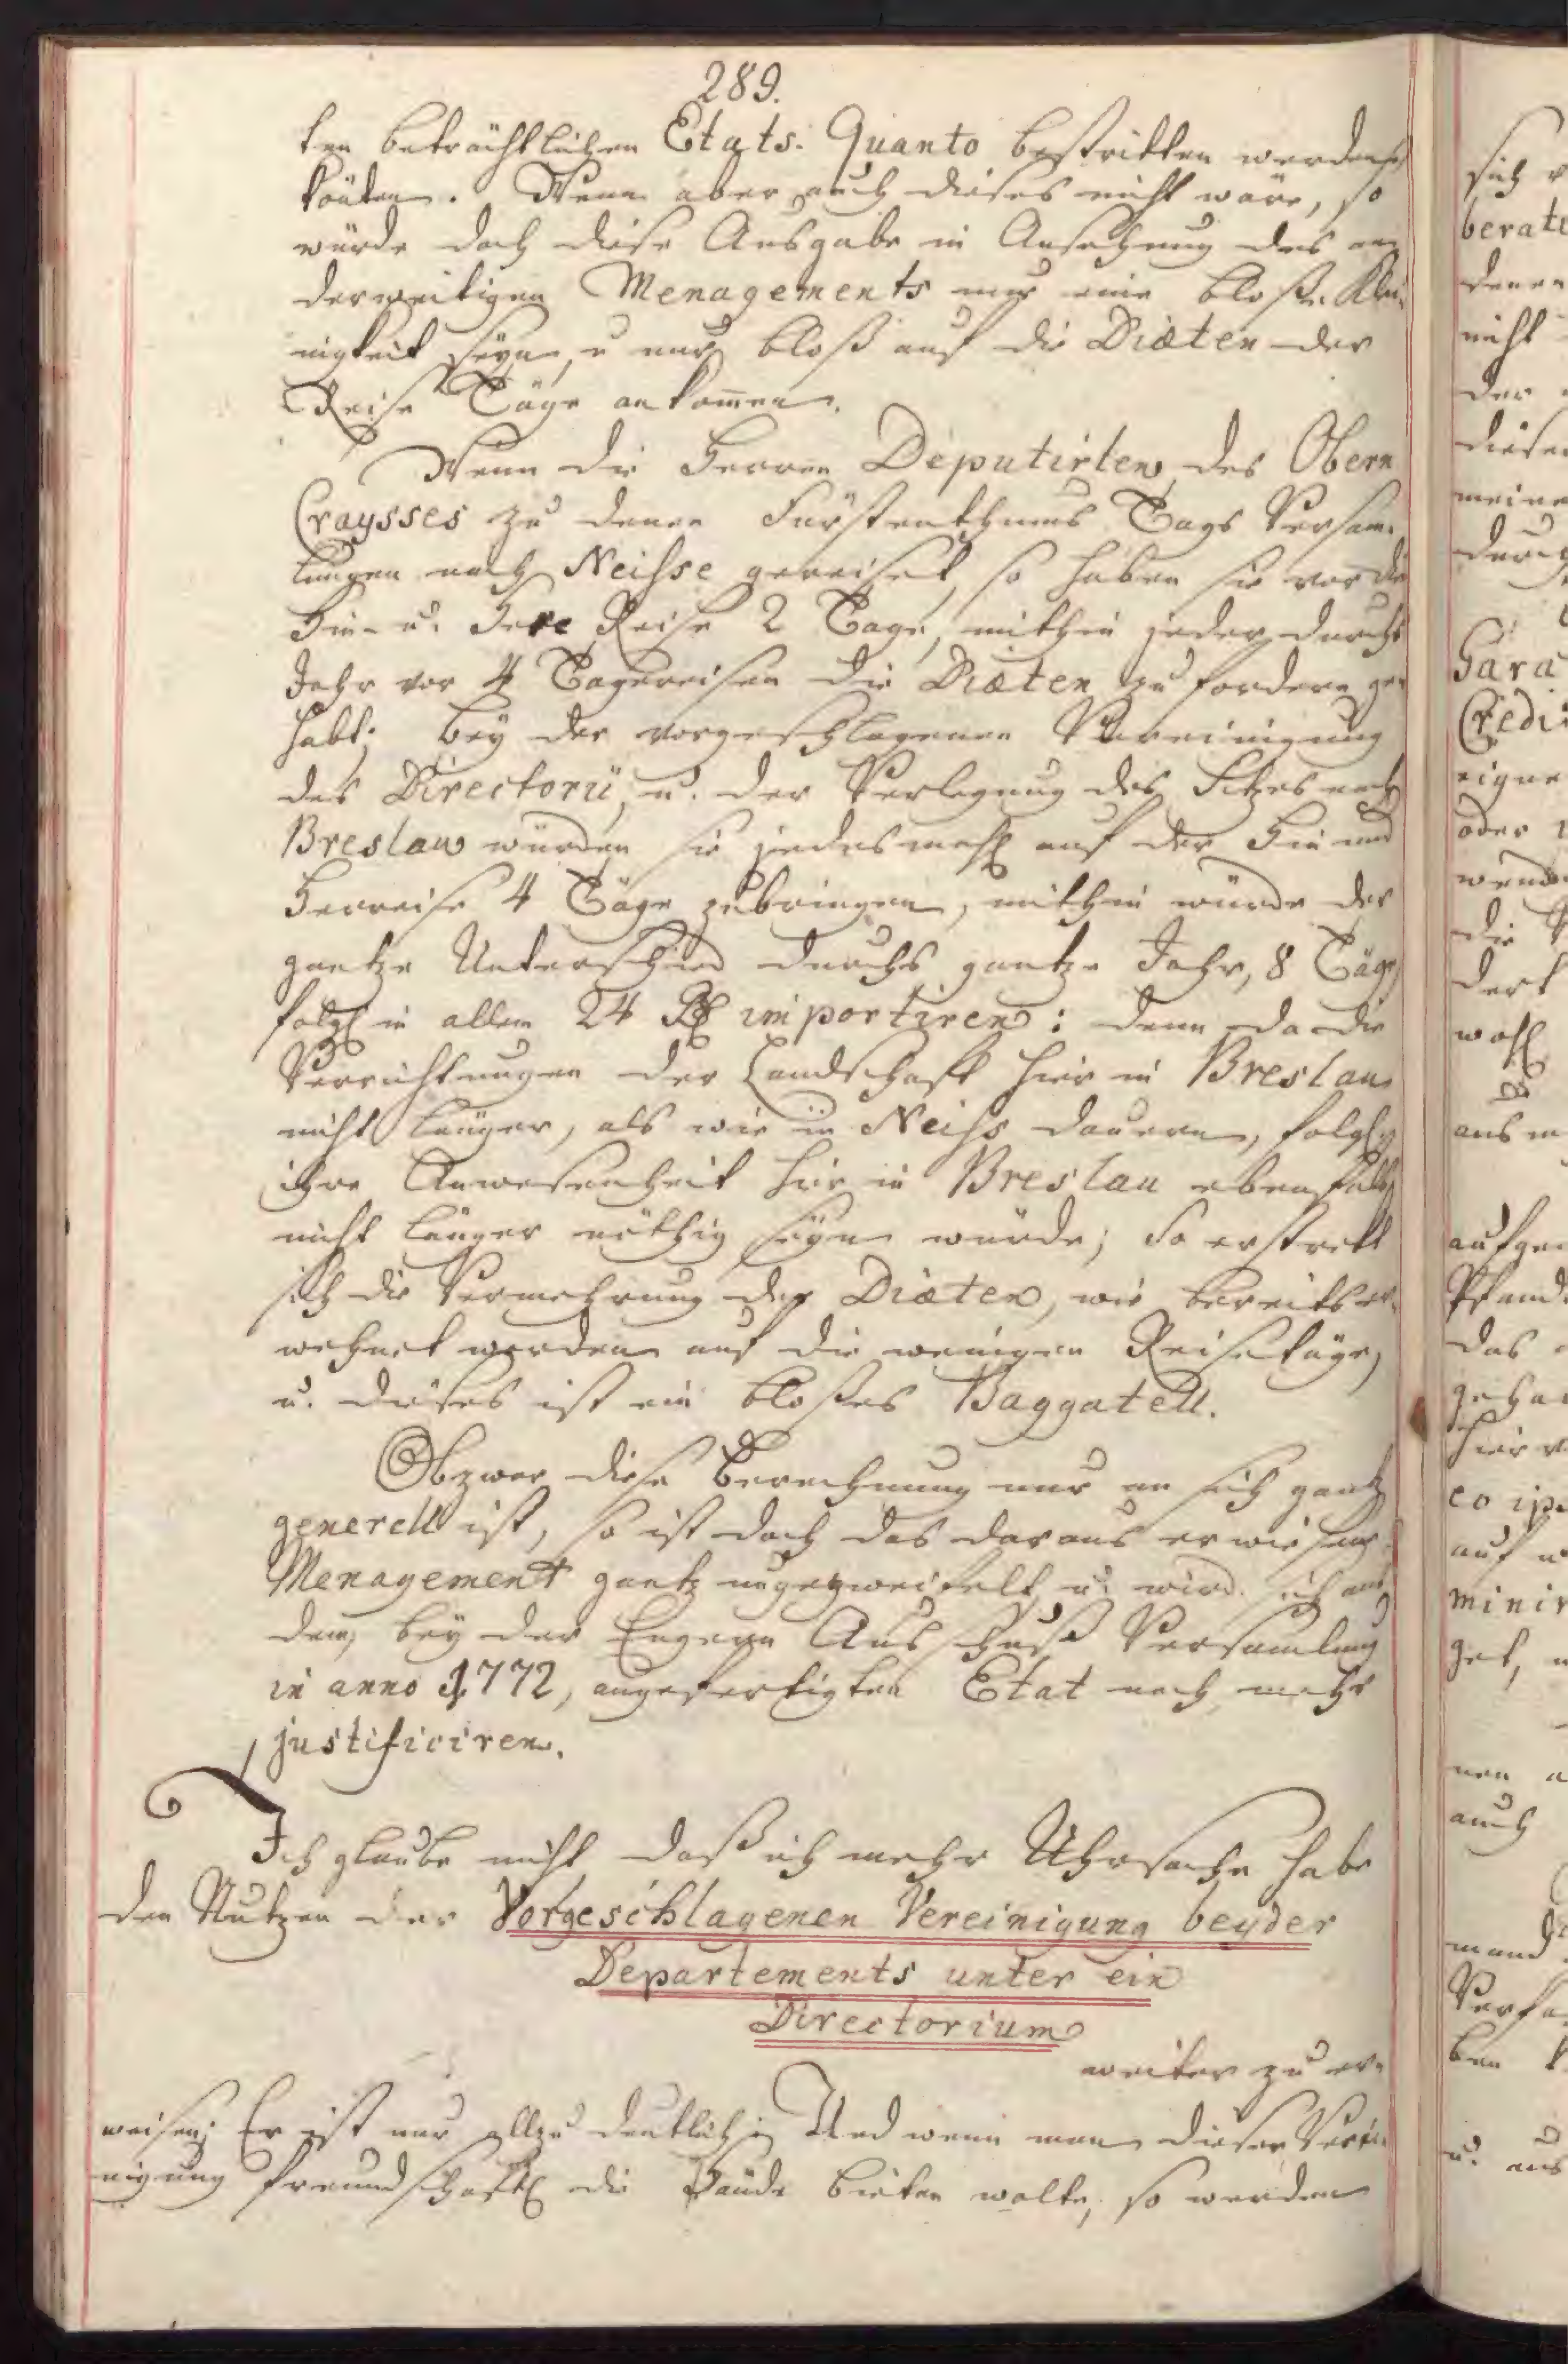 289.
ten beträchtlichen Etats-Quanto bestritten werden
könten. Wenn aber auch dieses nicht wäre, so
würde doch diese Ausgabe in Ansehung des an
derweitigen Menagements nur eine bloße Klei-
nigkeit seyn, u nur bloß auf die Diæten der
Reise Täge ankom̅en.
Wenn die Herren Deputirten des Obern
Craysses zu denen Fürstenthums Tags Versam̅-
lungen nach Neisse gereiset, so haben sie vor die
Hin- u. Her Reise 2 Tage, mithin jeder durchs
Jahr vor 4 Tagereisen die Diæten zu fordern ge
habt; bey der vorgeschlagenen Vereinigung
des Directorii, u. der Verlegung des Sitzes nach
Breslau würden sie jedesmahl auf der Hin und
Herreise 4 Täge zubringen, mithin würde der
gantze Unterschied durchs gantze Jahr, 8 Täge
folgl in allem 24 Rl importiren: denn da die
Verrichtungen der Landschaft hier in Breslau
nicht länger, als wie in Neiss dauern, folgl
ihre Anwesenheit hier in Breslau ebenfalls
nicht länger nöthig seyn würde; So erstreckt
sich die Vermehrung der Diæten, wie bereits er-
wehnet worden auf die wenigen Reisetäge,
u. dieses ist ein bloßes Baggatell.
Obzwar diese Berechnung nur an sich gantz
generell ist, so ist doch das daraus erwiesene
Menagement gantz ungezweifelt u. wird sich aus
dem, bey der Engern Ausschuß Versamlung
in anno 1772, angefertigten Etat noch mehr
justificiren.
Ich glaube nicht, daß ich mehr Uhrsache habe
den Nutzen der Vorgeschlagenen Vereinigung beyder
Departements unter ein
Directorium
weiter zu er-
weisen; Er ist nur allzu deutlich; Und wenn man dieser Verei-
nigung freundschaftl die Hände bieten wolte, so werden